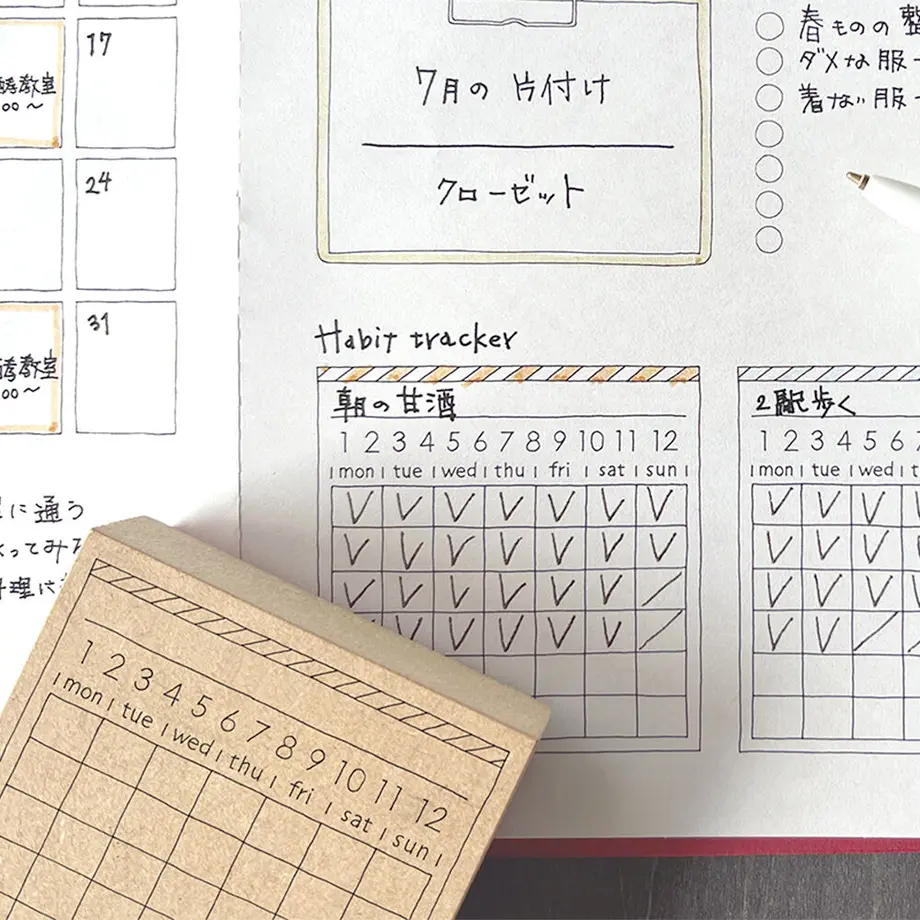 教室
00〜
17
24
31
教室
00〜
に通う
ってみる
料理に
7月の 片付け
クローゼット
春ものの 整
ダメな服
着ない服
Habit tracker
朝の甘酒
1 2 3 4 5 6 7 8 9 10 11 12
mon tue wed thu fri sat sun
2駅歩く
1 2 3 4 5 6
mon tue wed
1 2 3 4 5 6 7 8 9 10 11 12
mon tue wed thu fri sat sun